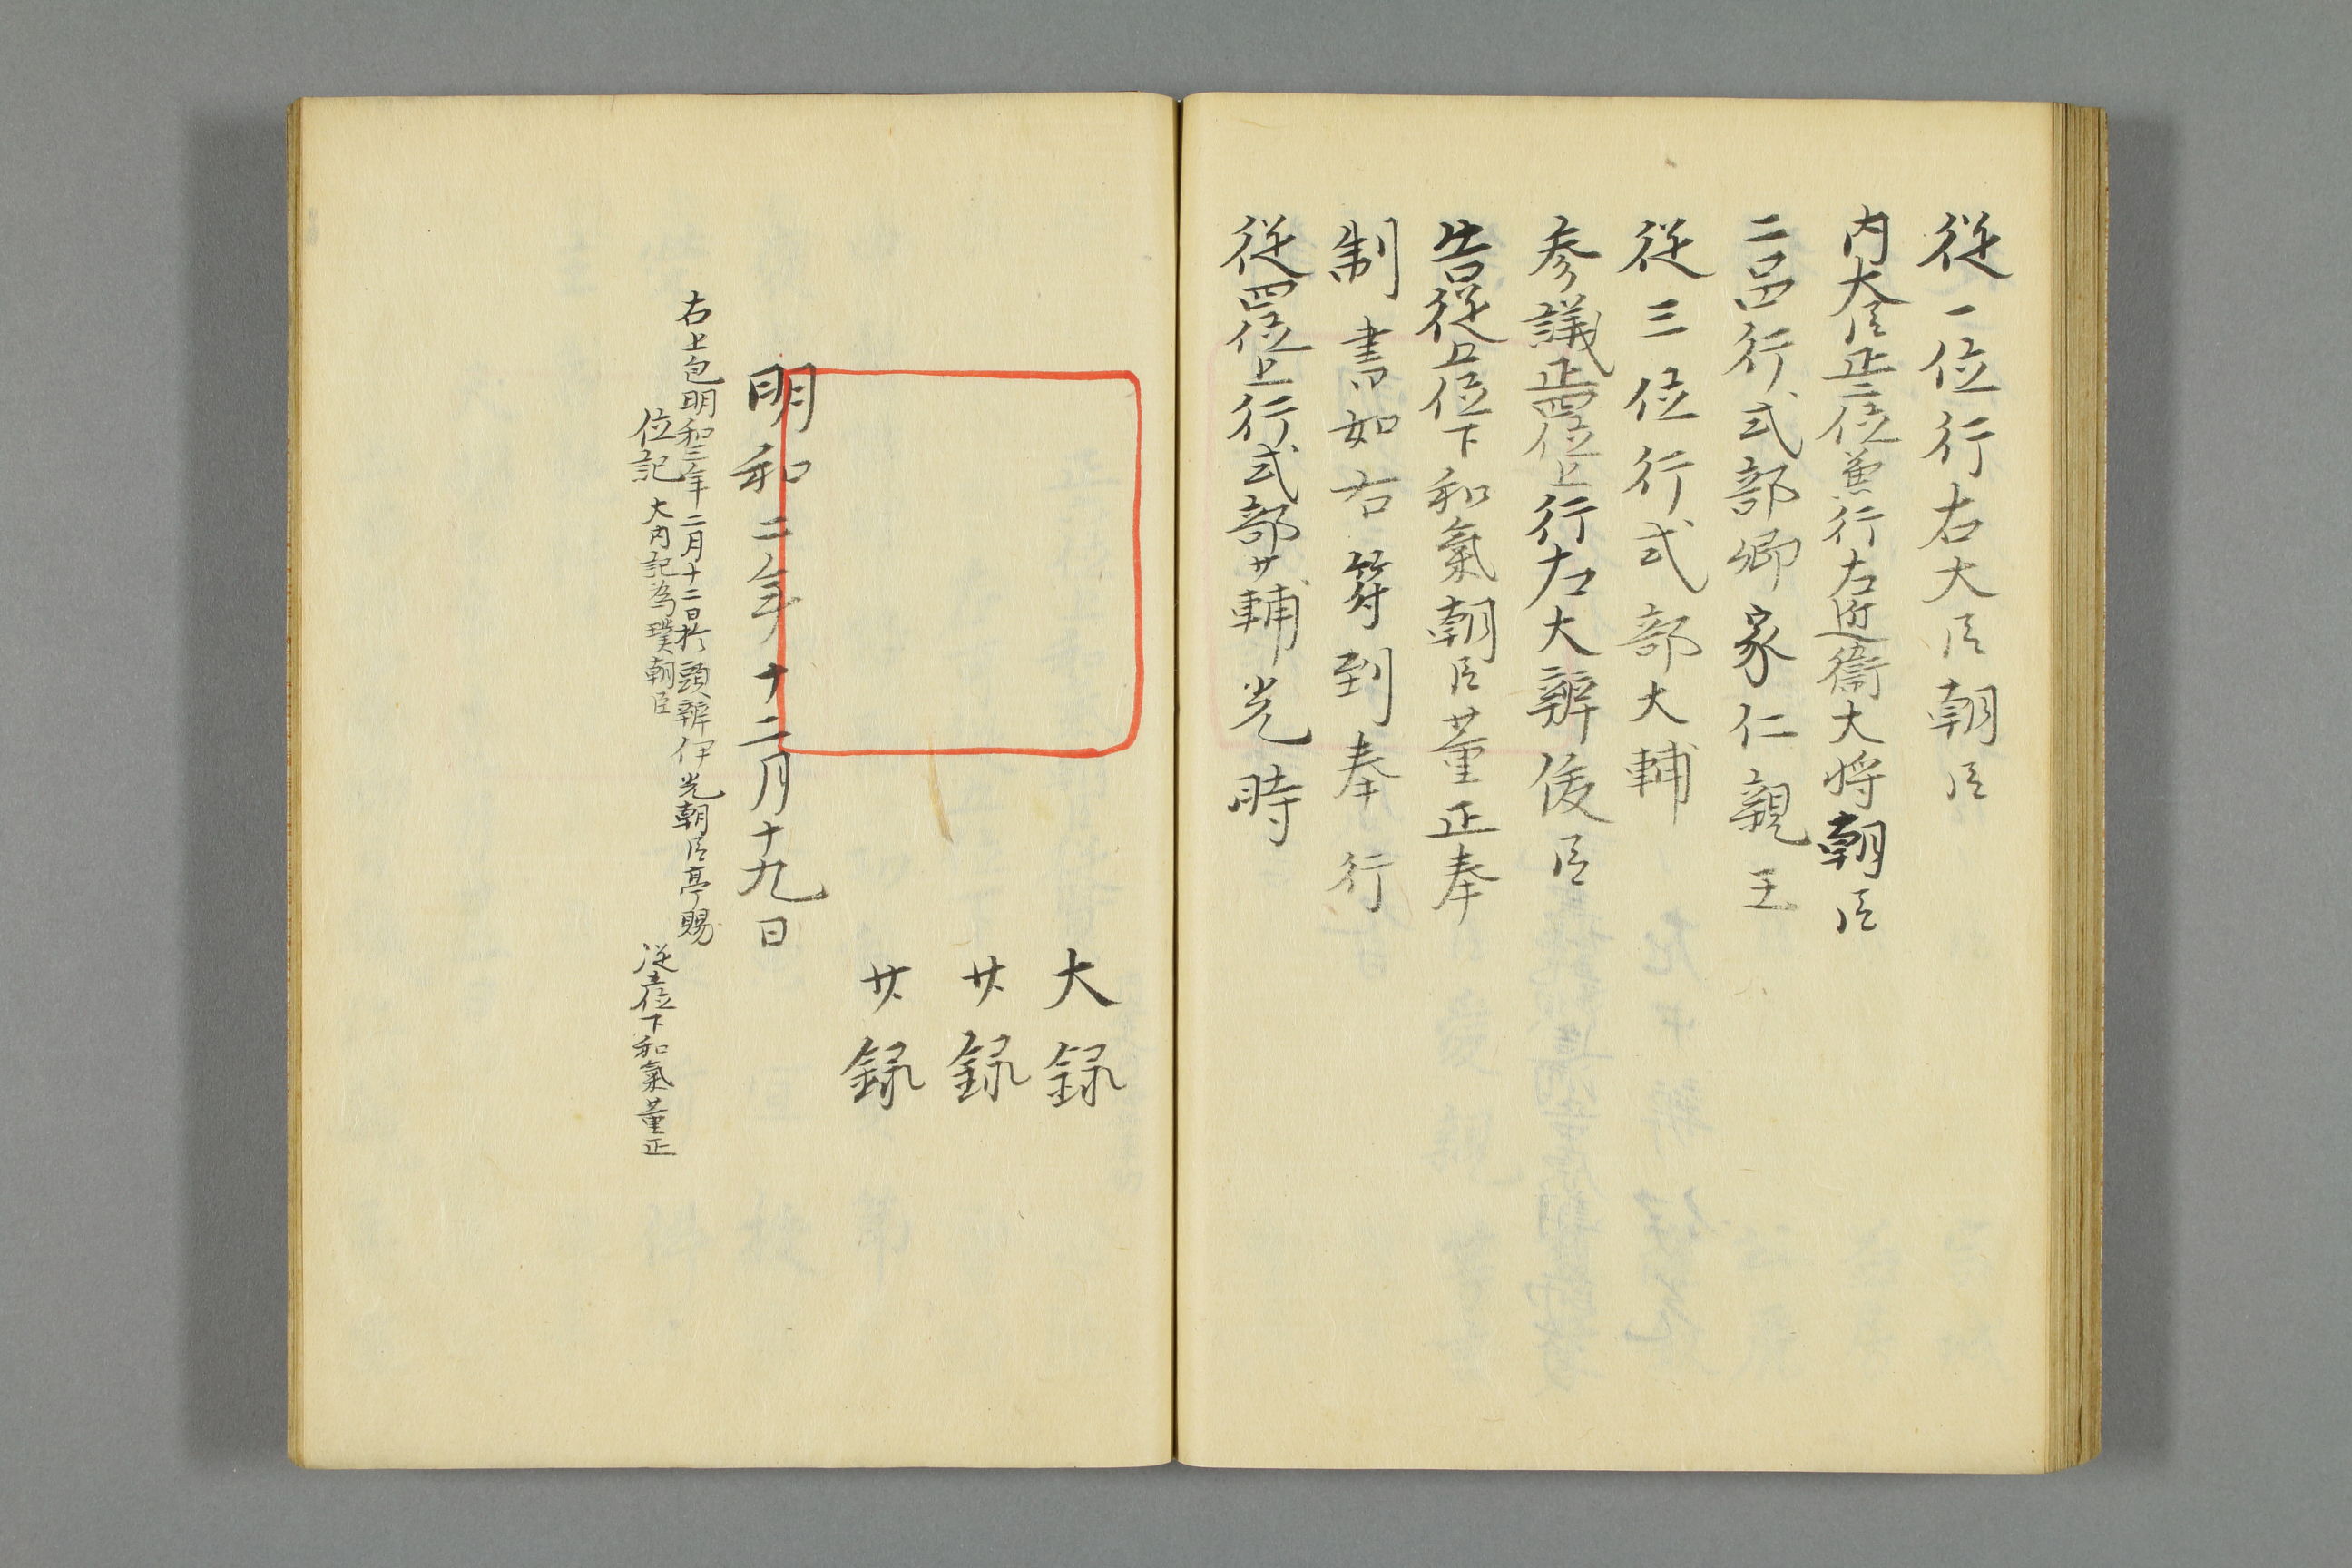 従一位行右大臣朝臣
内大臣正二位兼行右近衛大将朝臣
二品行式部卿家仁親王
従三位行式部大輔
参議正四位上行左大辨俊臣
告従五位下和氣朝臣董正奉
制書如右符到奉行
従四位上行式部少輔光時
大録
少録
少録
明和二年十二月十九日
右上包明和三年二月十二日於頭辨伊光朝臣亭賜
位記 大内記為璞朝臣
従五位下和氣董正